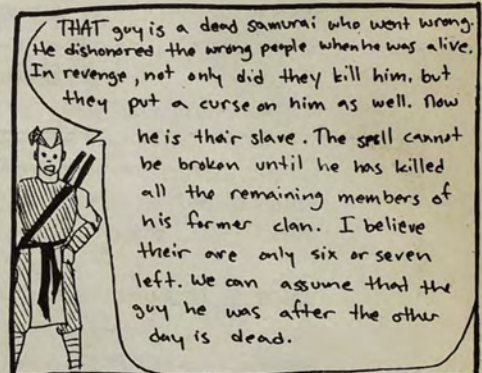 THAT guy is a dead samurai who went wrong.
He dishonored the wrong people when he was alive.
In revenge, not only did they kill him, but
they put a curse on him as well. Now
he is their slave. The spell cannot
be broken until he has killed
all the remaining members of
his former clan. I believe
their are only six or seven
left. We can assume that the
guy he was after the other
day is dead.